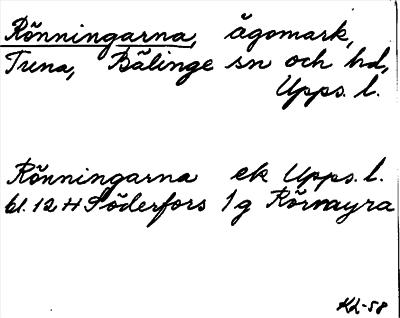 Rönningarna, ägomark,
Trena, Bälinge sn och hd,
Upps. l.
Rönningarna ek Upps. l.
bl. 12 H Söderfors 1 g Rörmayra
KL-58